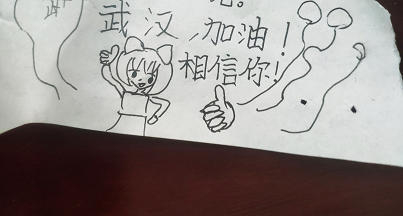 武汉,加油！
相信你！